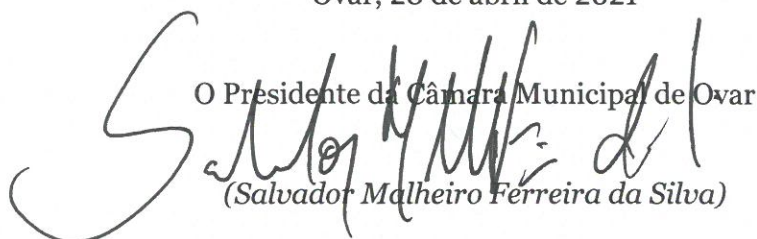 Ovar, 28 de abril de 2021
O Presidente da Câmara Municipal de Ovar
(Salvador Malheiro Ferreira da Silva)